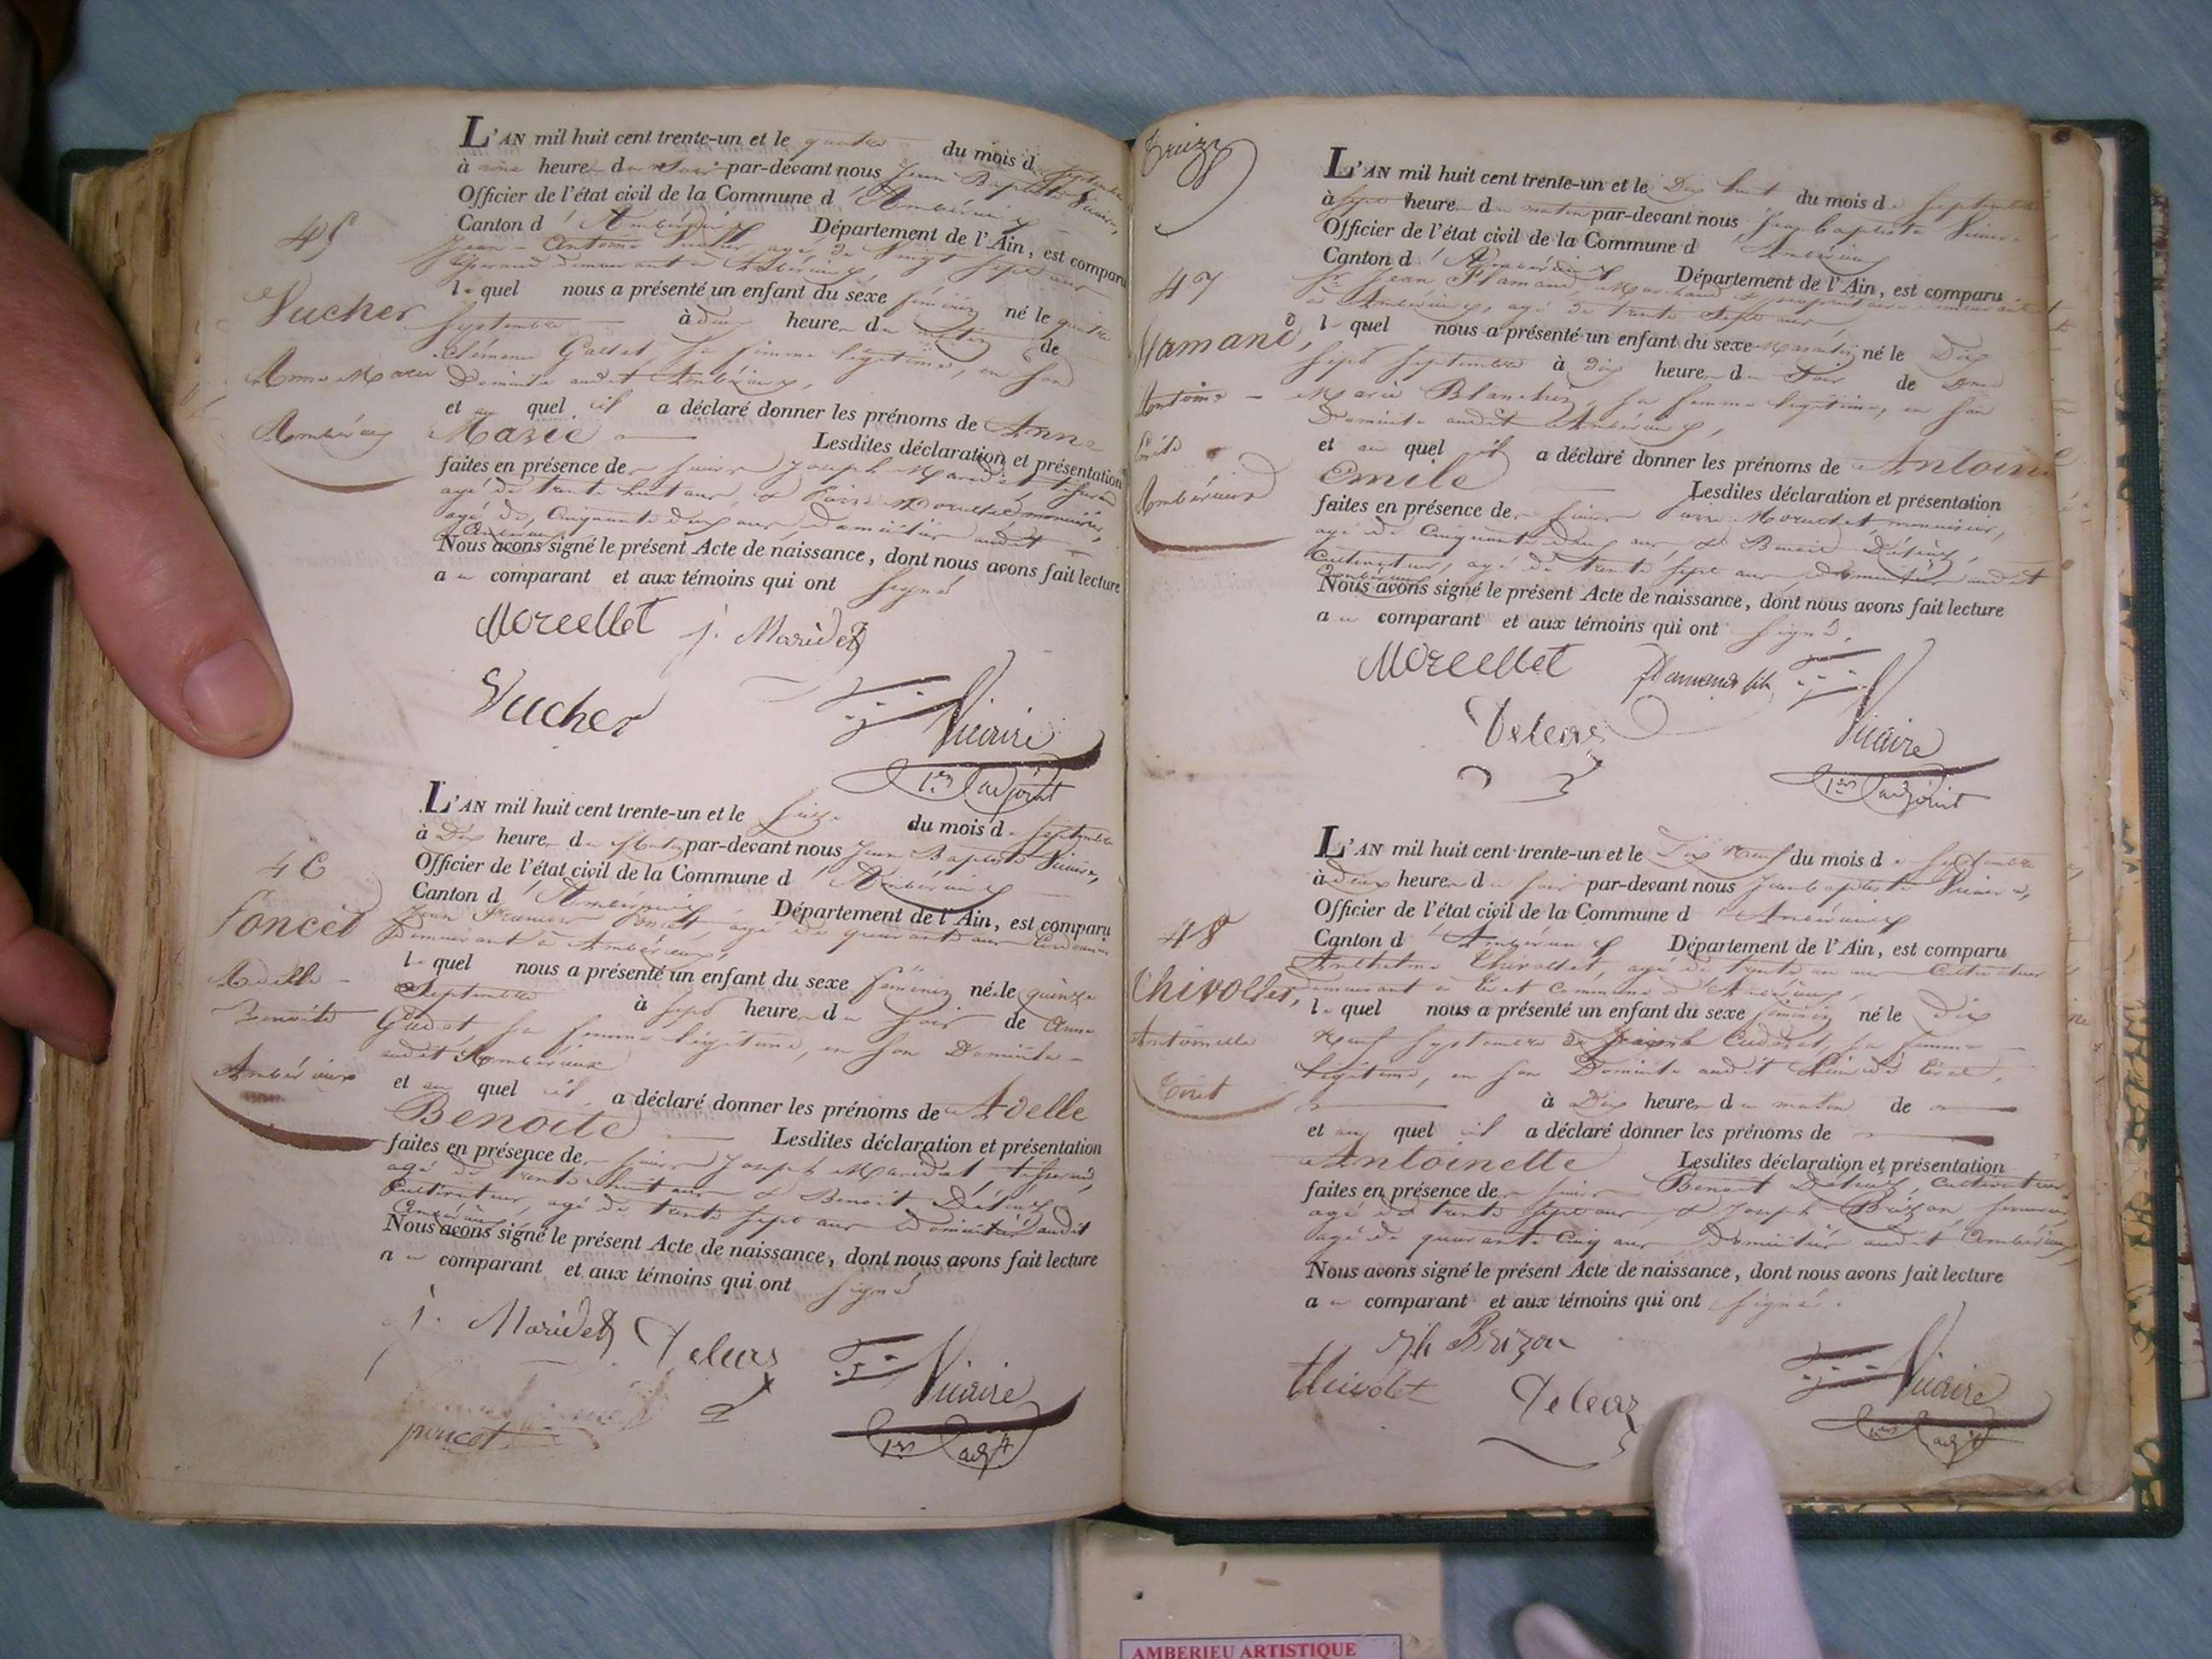 L'AN mil huit cent trente-un et le quatre du mois d. Septembre
à heure du Soir par-devant nous Jean Baptiste Vicaire,
Officier de l'état civil de la Commune d'Ambérieux
Canton d'Ambérieux Département de l'Ain, est comparu
45
Jean-Antoine Vucher, agé de Vingt Sept ans
tisserand demeurant à Ambérieux,
lequel nous a présenté un enfant du sexe féminin né le quatre
Vucher
Septembre à heure du matin de
Clémence Gallet, sa femme légitime, en son
Anne Marie
Domicile audit Ambérieux,
et au quel il a déclaré donner les prénoms de Anne
Ambérieux
Marie Lesdites déclaration et présentation
faites en présence de sieurs Joseph Maridet tisserand
agé de trente huit ans, & Pierre Morellet menuisier,
agé de Cinquante deux ans, domiciliés audit
Ambérieux
Nous avons signé le présent Acte de naissance, dont nous avons fait lecture
au comparant et aux témoins qui ont signé
Morcellet j. Maridet
Vucher Vicaire
1er adjoint
L'AN mil huit cent trente-un et le seize du mois d. Septembre
à Dix heure du Matin par-devant nous Jean Baptiste Vicaire,
Officier de l'état civil de la Commune d'Ambérieux
46
Canton d'Ambérieux Département de l'Ain, est comparu
Jean Poncet, agé de quarante ans Cordonnier
Poncet
demeurant à Ambérieux,
lequel nous a présenté un enfant du sexe féminin né le quinze
Adelle
Septembre à sept heure du soir de Anne
Benoite
sa femme légitime, en son Domicile
audit Ambérieux
Ambérieux
et au quel il a déclaré donner les prénoms de Adelle
Benoite Lesdites déclaration et présentation
faites en présence de sieurs Joseph Maridet tisserand,
agé de trente huit ans & Benoit
Cultivateur, agé de trente sept ans domiciliés audit
Ambérieux
Nous avons signé le présent Acte de naissance, dont nous avons fait lecture
au comparant et aux témoins qui ont signé
j. Maridet Vicaire
poncet 1er adjt
L'AN mil huit cent trente-un et le Dix huit du mois de Septembre
à sept heure du matin par-devant nous Jean baptiste Vicaire
Officier de l'état civil de la Commune d'Ambérieux
Canton d'Ambérieux Département de l'Ain, est comparu
47
Sr. Jean Flamand, Marchand & propriétaire demeurant
à Ambérieux, agé de trente Sept ans
lequel nous a présenté un enfant du sexe Masculin né le Dix
Flamand,
sept Septembre à Dix heure du Soir de
Antoine
Marie Blanchin, sa femme légitime, en son
Domicile audit Ambérieux,
Emile
et au quel il a déclaré donner les prénoms de Antoine
Emile Lesdites déclaration et présentation
Ambérieux
faites en présence de sieurs Pierre Morcellet menuisier,
agé de Cinquante deux ans, & Benoit
Cultivateur, agé de trente sept ans domiciliés audit
Ambérieux
Nous avons signé le présent Acte de naissance, dont nous avons fait lecture
au comparant et aux témoins qui ont signé.
Morcellet flamand fils
Vicaire
1er adjoint
L'AN mil huit cent trente-un et le Dix Neuf du mois de Septembre
à Deux heure du soir par-devant nous Jean baptiste Vicaire,
Officier de l'état civil de la Commune d'Ambérieux
48
Canton d'Ambérieux Département de l'Ain, est comparu
Anthelme Thivollet, agé de trente un ans Cultivateur
Thivollet,
demeurant à Tiret Commune d'Ambérieux,
lequel nous a présenté un enfant du sexe féminin né le Dix
Antoinette
Neuf Septembre de sa femme
légitime, en son Domicile audit Lieu de Tiret,
Tiret
à Dix heure du matin de
et au quel il a déclaré donner les prénoms de
Antoinette Lesdites déclaration et présentation
faites en présence de sieurs Benoit Cultivateur
agé de trente sept ans & Joseph Brizon
agé de quarante Cinq ans Domiciliés audit Ambérieux
Nous avons signé le présent Acte de naissance, dont nous avons fait lecture
au comparant et aux témoins qui ont signé.
Jh Brizon
thivolet Vicaire
1er adjt
AMBERIEU ARTISTIQUE